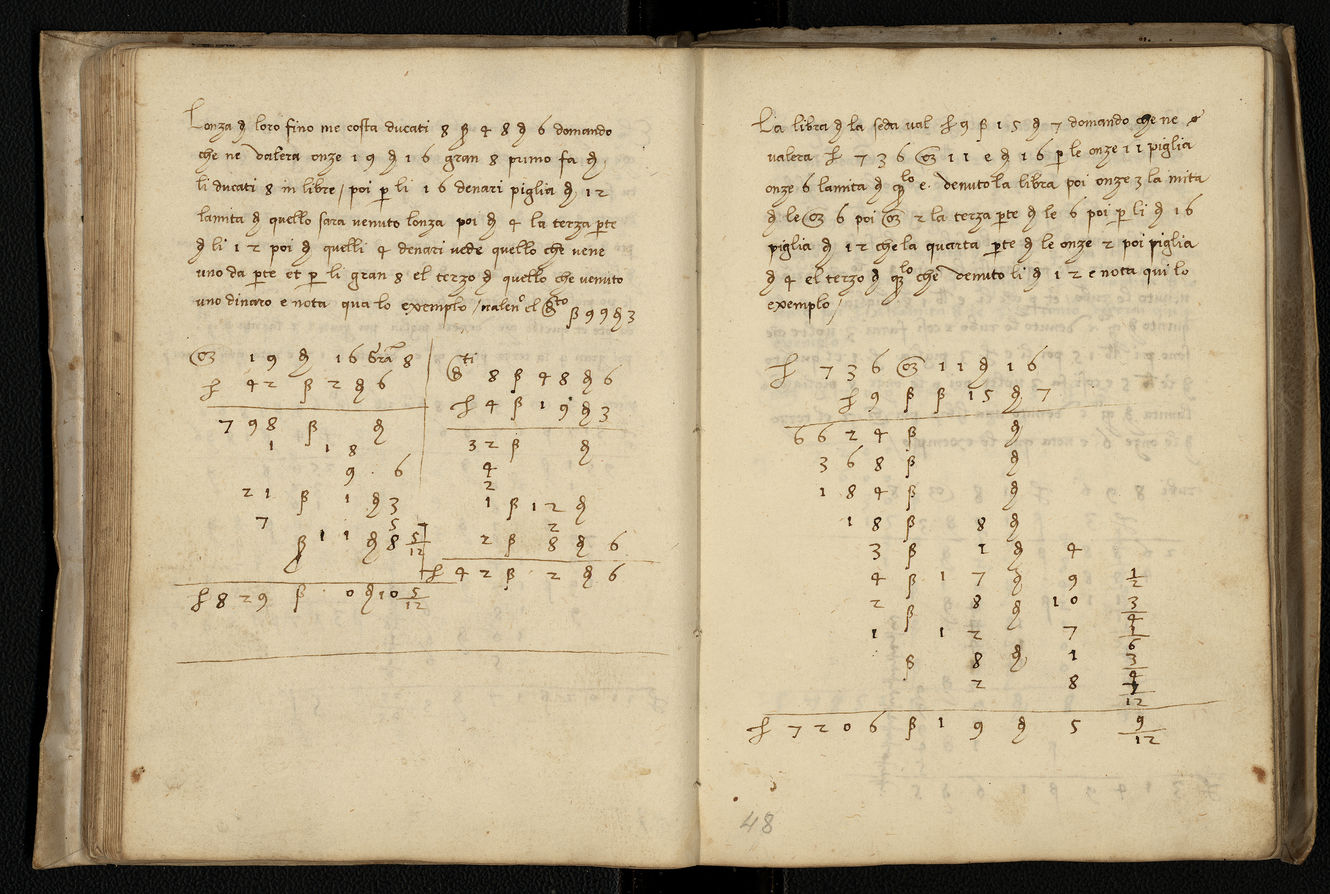 Lonza d loro fino me costa ducati 8 ß 48 d 6 domando
che ne valera onze 19 d 16 gran 8 primo fa d
li ducati 8 in libre / poi p li 16 denari piglia d 12
lamita d quello sara venuto lonza poi d 4 la terza pte
d li 12 poi d quelli 4 denari vede quello che vene
uno da pte et p li gran 8 el terzo d quello che venuto
uno dinaro e nota qua lo exemplo /
ß 99 d 3
19 d 16 gra 8
£ 42 ß 2 d 6
798 ß d
1 18
9 6
21 ß 1 d 3
7 5
ß 11 d 8 5/12
£ 829 ß 0 d 10 5/12
8 ß 48 d 6
£ 4 ß 19 d 3
32 ß d
4
2
1 ß 12 d
2
2 ß 8 d 6
£ 42 ß 2 d 6
La libra d la seda val £ 9 ß 15 d 7 domando che ne
valera £ 736 oz 11 e d 16 p le onze 11 piglia
onze 6 lamita d qlo e venuto la libra poi onze 3 la mita
d le oz 6 poi oz 2 la terza pte d le 6 poi p li d 16
piglia d 12 che la quarta pte d le onze 2 poi piglia
d 4 el terzo d qlo che venuto li d 12 e nota qui lo
exemplo /
£ 736 oz 11 d 16
£ 9 ß ß 15 d 7
6624 ß d
368 ß d
184 ß d
18 ß 8 d
3 ß 1 d 4
4 ß 17 d 9 1/2
2 ß 8 d 10 3/4
1 12 7 1/6
ß 8 d 1 3/4
2 8 7/12
£ 7206 ß 19 d 5 9/12
48